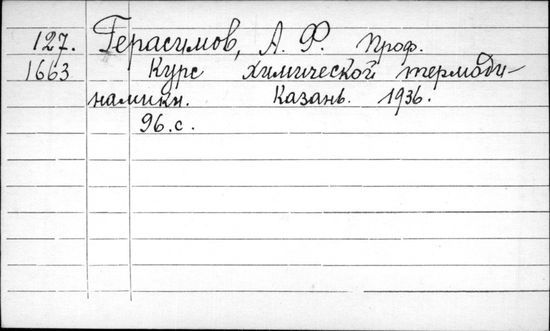 127. Герасимов, А. Ф. Проф.
1663 Курс химической термоди-
намики. Казань. 1936.
96. с.